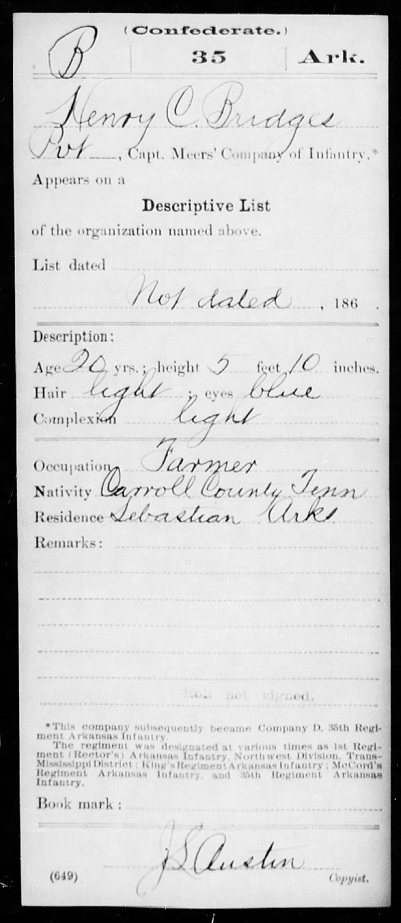 (Confederate.)
B | 35 | Ark.
Henry C. Bridges
Pvt, Capt. Meers' Company of Infantry.*
Appears on a
Descriptive List
of the organization named above.
List dated
Not dated, 186 .
Description:
Age 20 yrs.; height 5 feet 10 inches.
Hair light; eyes blue
Complexion light
Occupation Farmer
Nativity Carroll County Tenn
Residence Sebastian Arks
Remarks:
Roll not signed.
*This company subsequently became Company D, 35th Regi-
ment Arkansas Infantry.
The regiment was designated at various times as 1st Regi-
ment (Rector's) Arkansas Infantry, Northwest Division, Trans-
Mississippi District; King's Regiment Arkansas Infantry; McCord's
Regiment Arkansas Infantry, and 35th Regiment Arkansas
Infantry.
Book mark:
J S Austin
(649) Copyist.